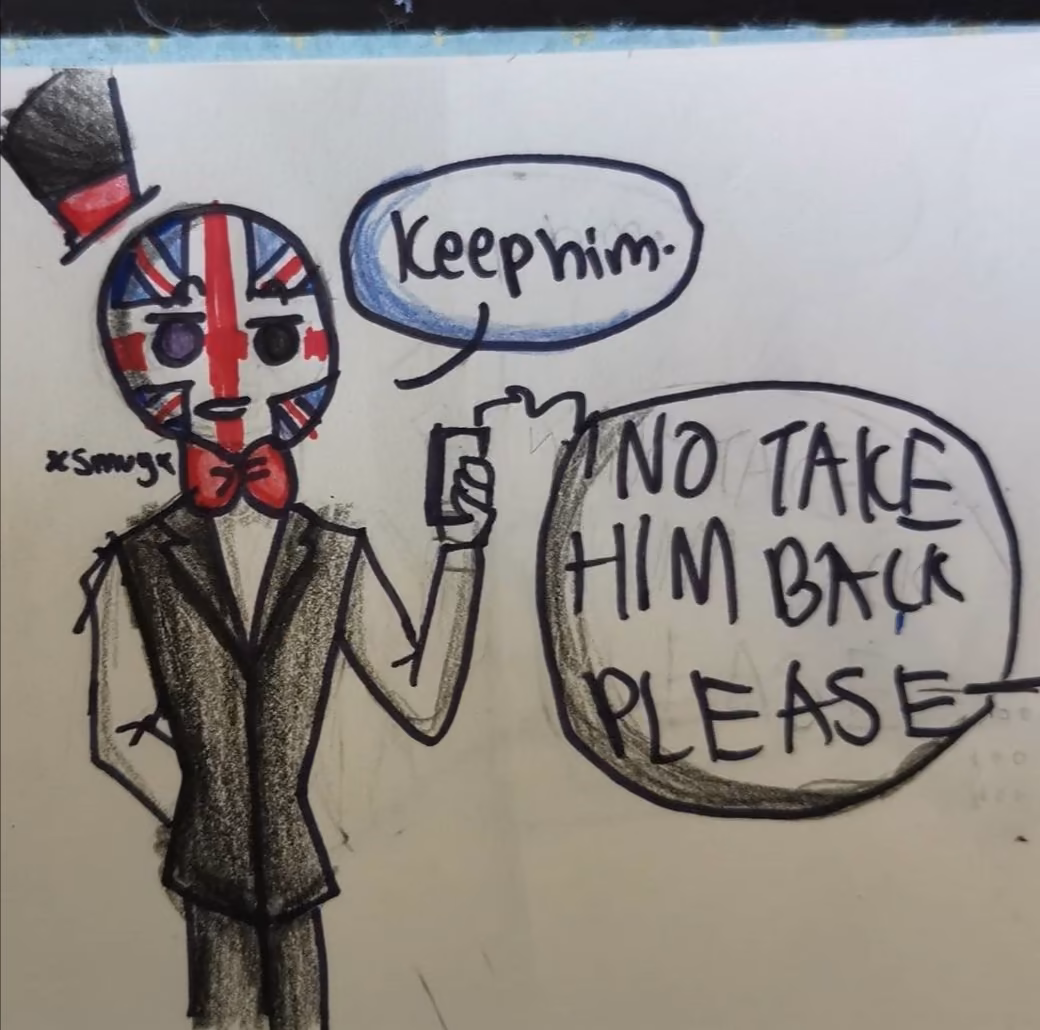 Keep him.
NO TAKE
HIM BACK
PLEASE
xSmugx